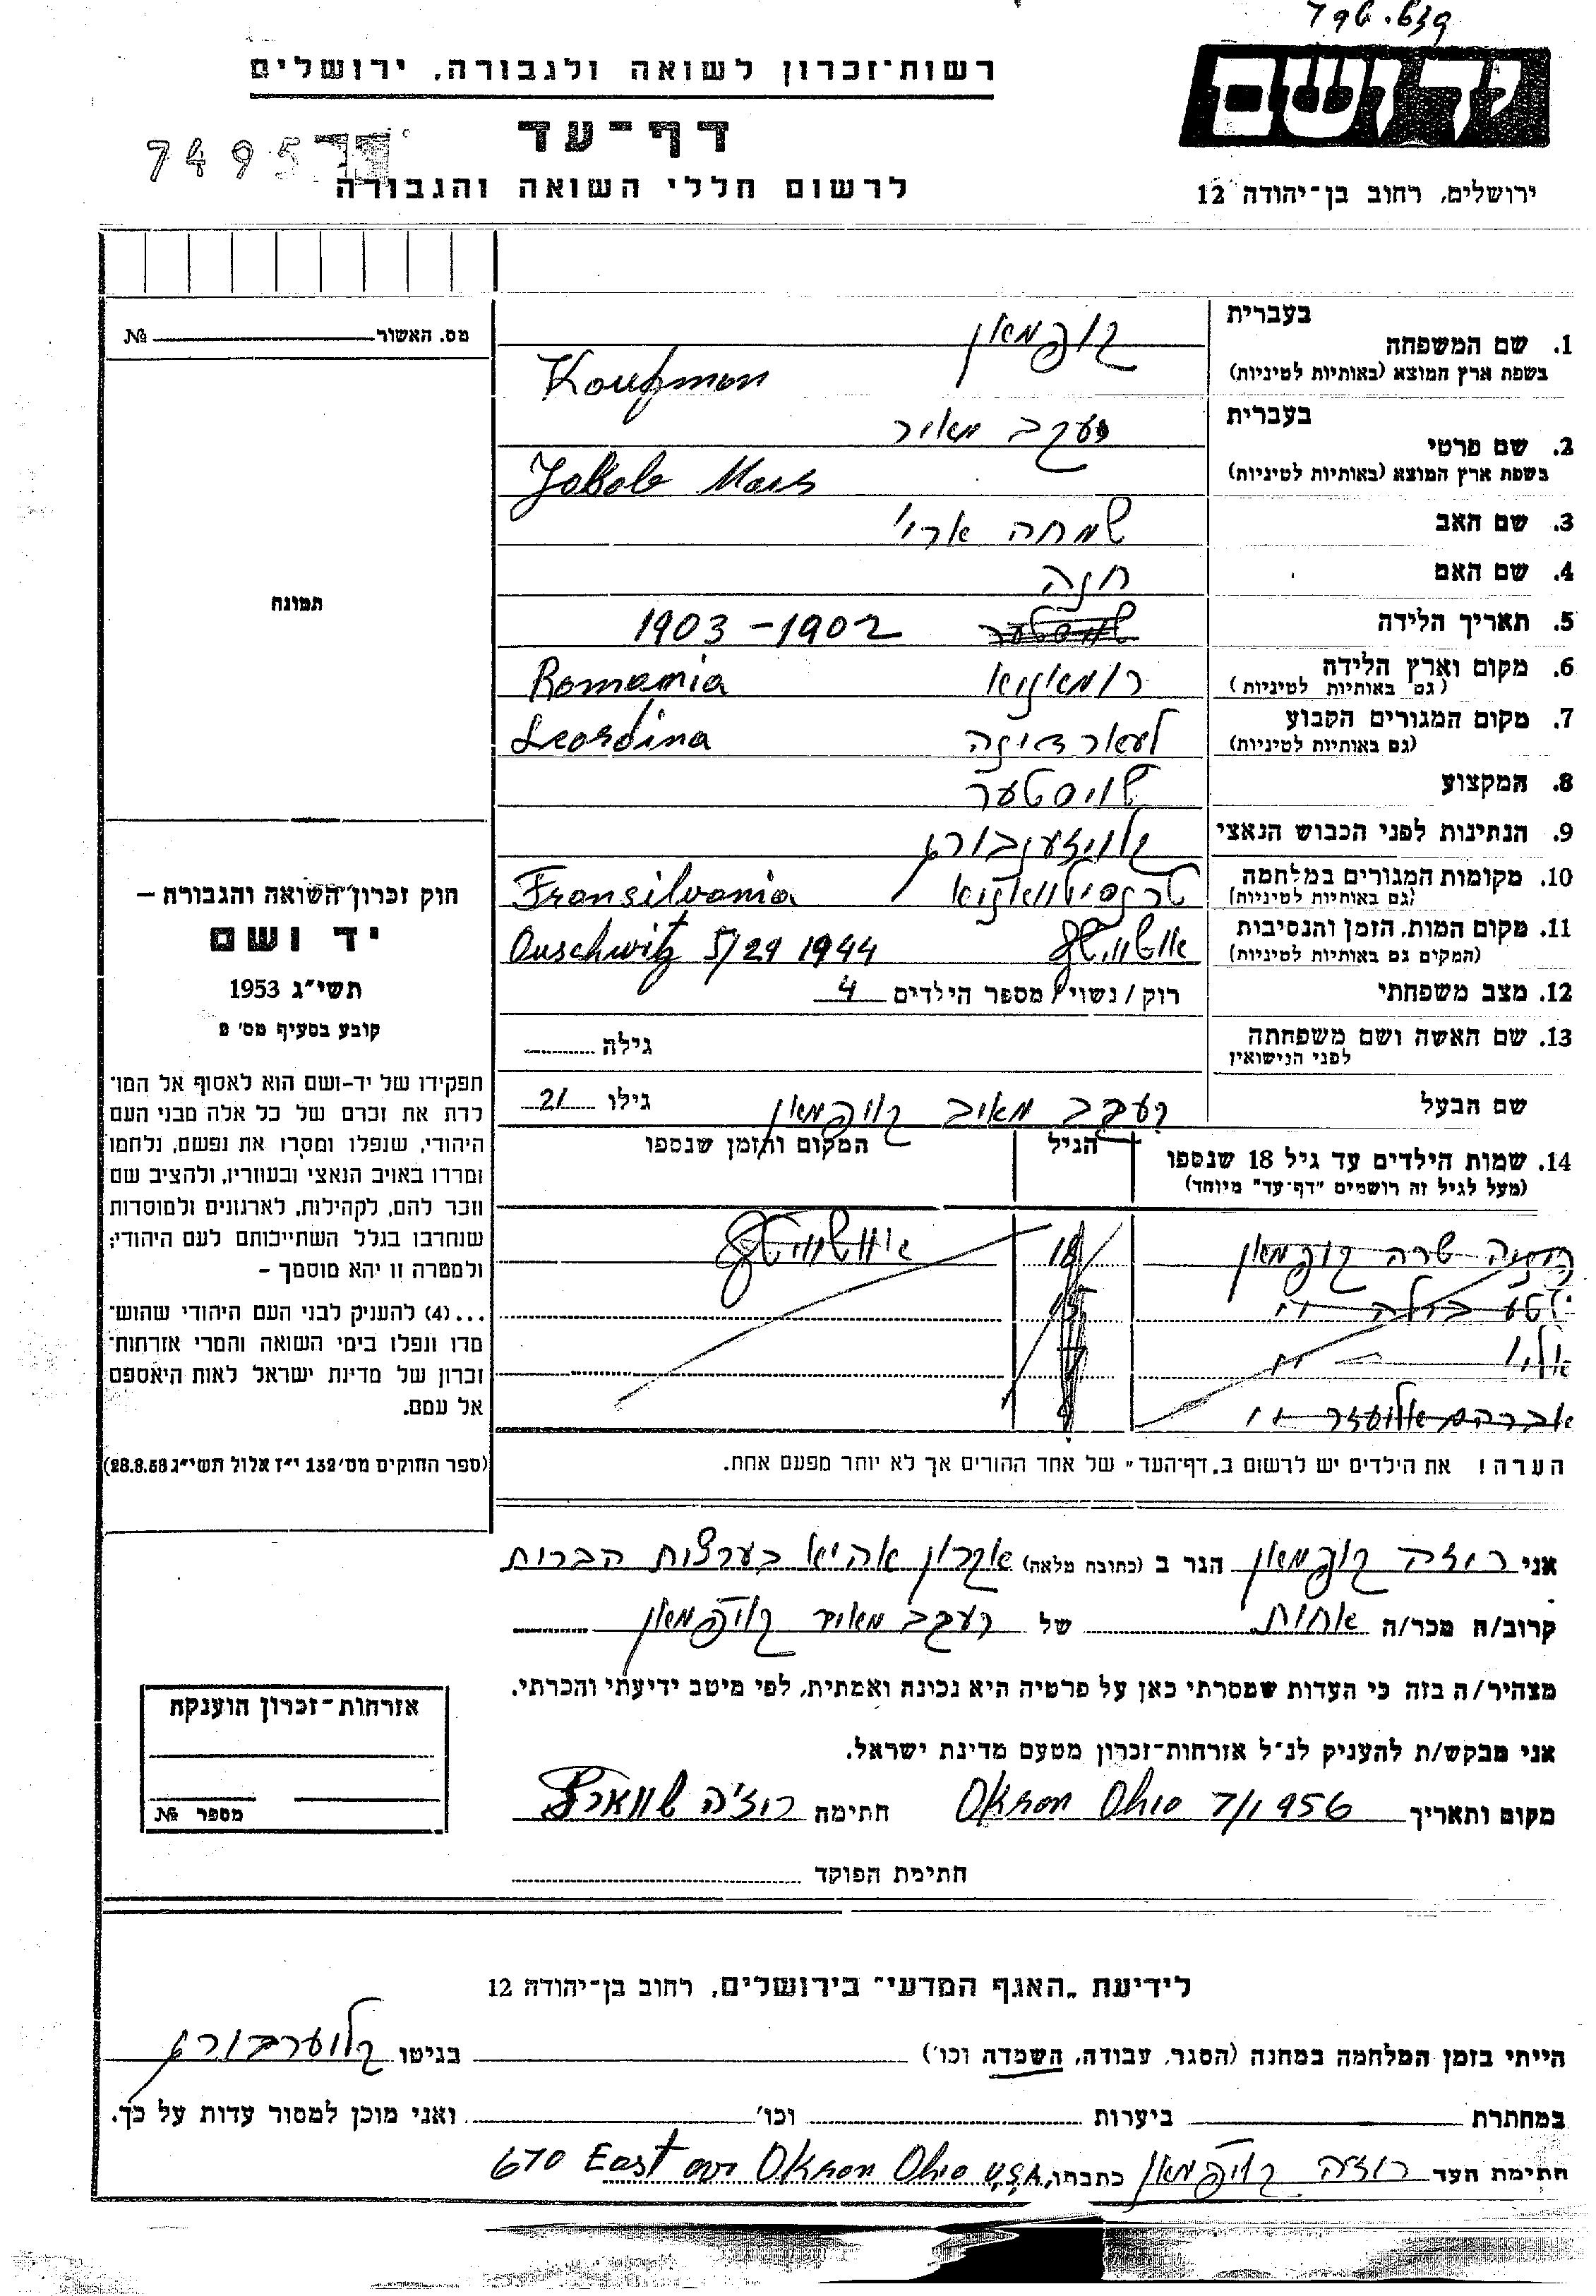 רשות־זכרון לשואה ולגבורה, ירושלים
דף־עד
7495
לרשום חללי השואה והגבורה
יד ושם
ירושלים, רחוב בן־יהודה 12
מס. האשור № 
תמונה
חוק זכרון־השואה והגבורה –
יד ושם
תשי"ג 1953
קובע בסעיף מס' 2
תפקידו של יד-ושם הוא לאסוף אל המו־
לדת את זכרם של כל אלה מבני העם
היהודי, שנפלו ומסרו את נפשם, נלחמו
ומרדו באויב הנאצי ובעוזריו, ולהציב שם
וזכר להם, לקהילות, לארגונים ולמוסדות
שנחרבו בגלל השתייכותם לעם היהודי;
ולמטרה זו יהא מוסמך –
...(4) להעניק לבני העם היהודי שהוש־
מדו ונפלו בימי השואה והמרי אזרחות־
זכרון של מדינת ישראל לאות היאספם
אל עמם.
(ספר החוקים מס' 132 י"ז אלול תשי"ג 28.8.53)
בעברית קופמאן
1. שם המשפחה
בשפת ארץ המוצא (באותיות לטיניות) Koufmon
בעברית יעקב מאיר
2. שם פרטי
בשפת ארץ המוצא (באותיות לטיניות) Jokob
3. שם האב שמחה ארי'
4. שם האם חנה
5. תאריך הלידה שוסטער 1903 – 1902
6. מקום וארץ הלידה רומאניא Romania
(גם באותיות לטיניות)
7. מקום המגורים הקבוע לעארדינה Leordina
(גם באותיות לטיניות)
8. המקצוע שויסטער
9. הנתינות לפני הכבוש הנאצי
10. מקומות המגורים במלחמה טרנסילוואניא Fransilvania
(גם באותיות לטיניות)
11. מקום המות, הזמן והנסיבות אושוויץ Ouschwitz 5/29 1944
(המקום גם באותיות לטיניות)
12. מצב משפחתי רוק / נשוי / מספר הילדים 4
13. שם האשה ושם משפחתה גילה
לפני הנישואין
שם הבעל יעקב מאיר קויפמאן גילו 21
14. שמות הילדים עד גיל 18 שנספו הגיל המקום והזמן שנספו
(מעל לגיל זה רושמים "דף־עד" מיוחד)
שרה קופמאן 18 אושוויץ
אברהם אלועזר
הערה! את הילדים יש לרשום ב"דף־העד" של אחד ההורים אך לא יותר מפעם אחת.
אני רוזה קופמאן הגר ב (כתובת מלאה) אקרון אהיא בערצות הברות
קרוב/ה מכר/ה אחות של יעקב מאיר קויפמאן
מצהיר/ה בזה כי העדות שמסרתי כאן על פרטיה היא נכונה ואמתית, לפי מיטב ידיעתי והכרתי.
אני מבקש/ת להעניק לנ"ל אזרחות־זכרון מטעם מדינת ישראל.
מקום ותאריך Okron Ohio 7/1956 חתימה רוז'ה שווארץ
חתימת הפוקד
אזרחות־זכרון הוענקה
מספר №
לידיעת "האגף המדעי" בירושלים, רחוב בן־יהודה 12
הייתי בזמן המלחמה במחנה (הסגר, עבודה, השמדה וכו') בגיטו
במחתרת ביערות וכו' ואני מוכן למסור עדות על כך.
חתימת העד רוז'ה קויפמאן כתבתו 670 East ave Okron Ohio U.S.A.